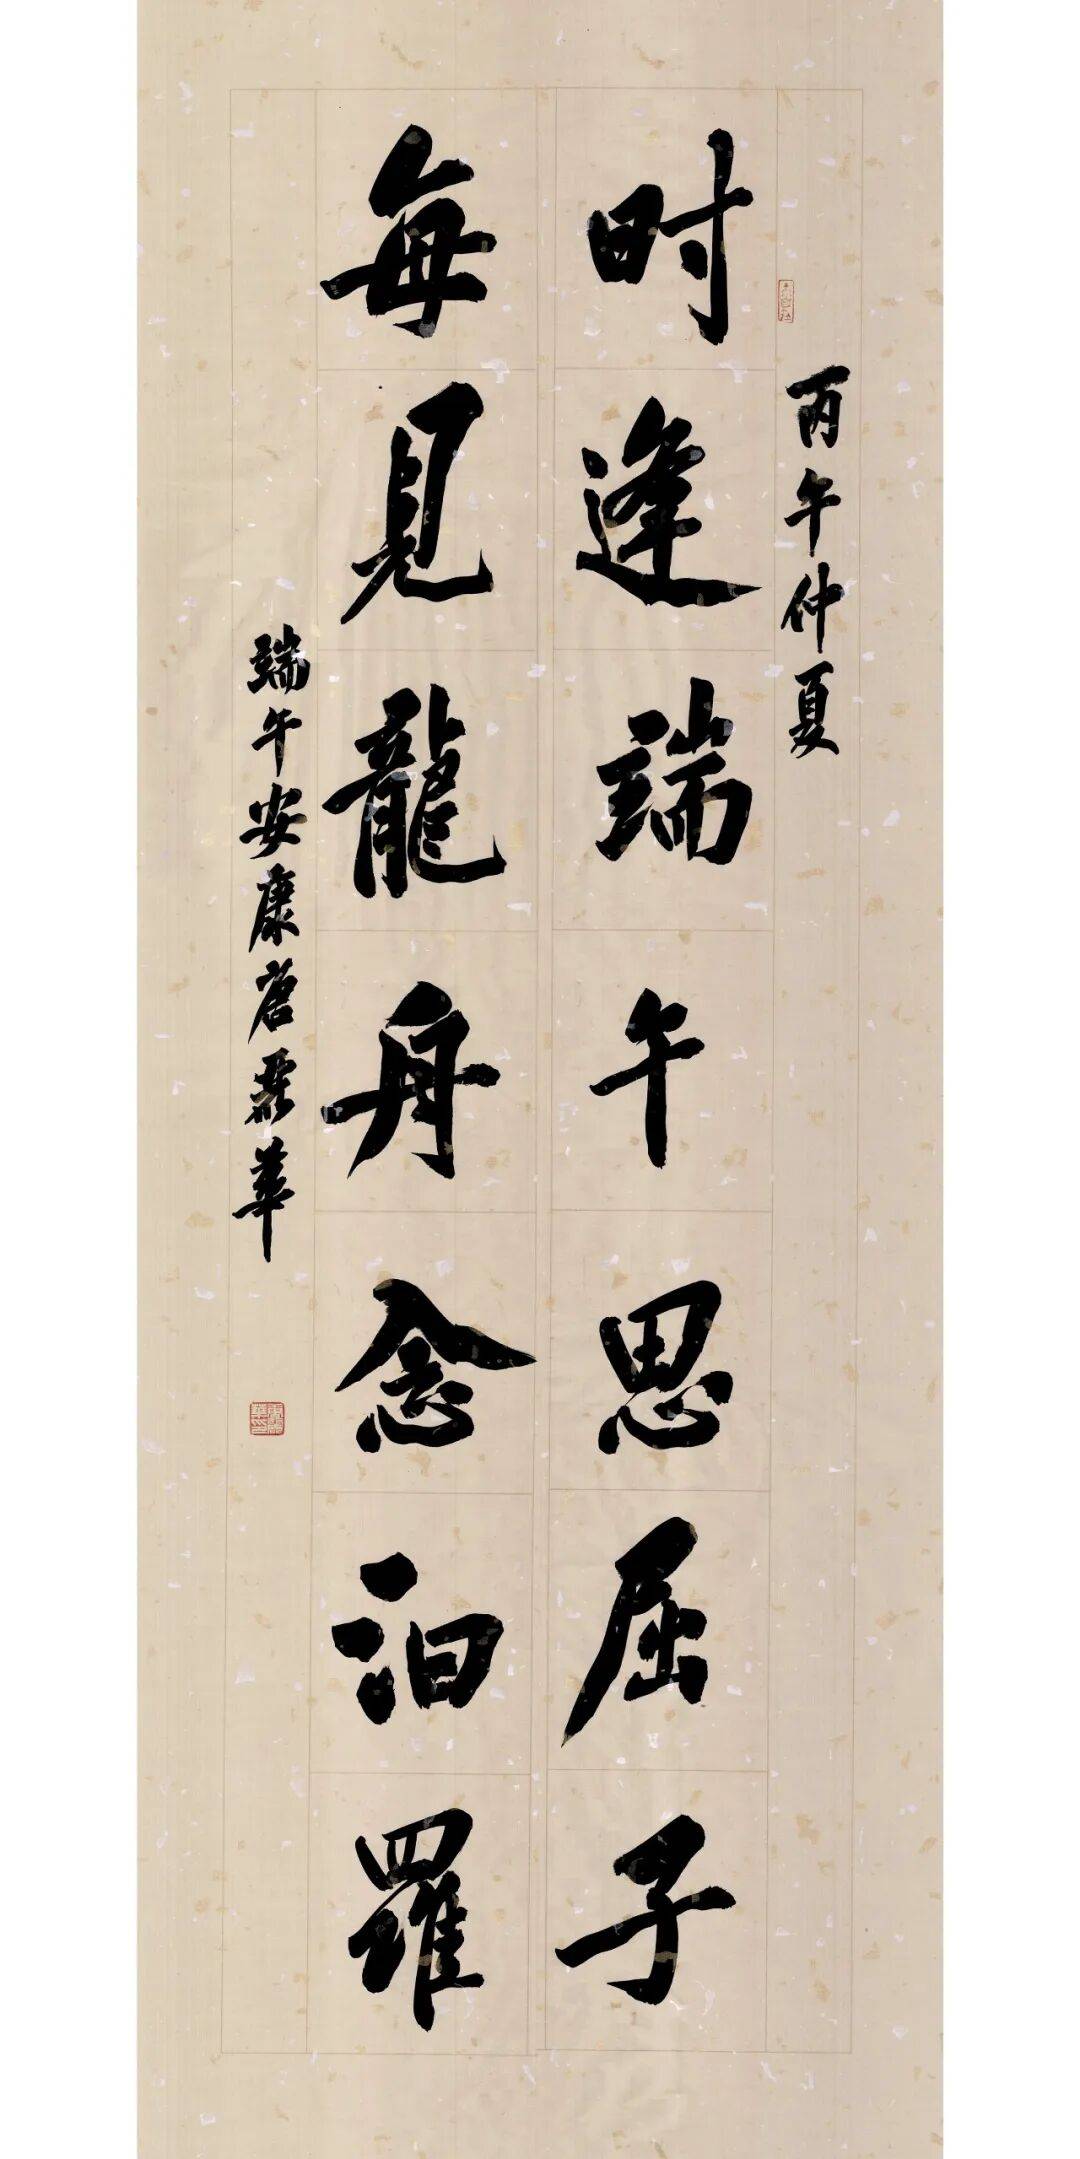 丙午仲夏
时逢端午思屈子
每見龍舟念汨羅
端午安康華